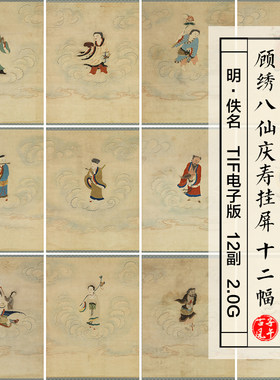 顾绣八仙庆寿挂屏 十二幅
明·佚名 TIF电子版 12副 2.0G